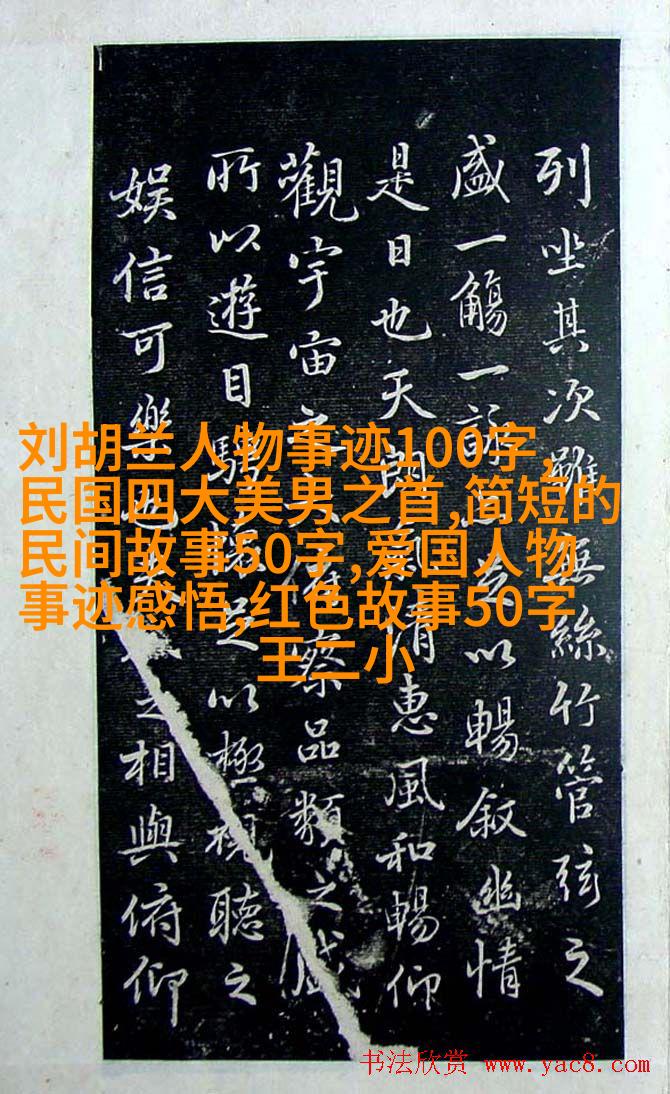 列坐其次雖無絲竹管弦之
盛一觴一詠以暢叙幽情
是日也天朗清惠風和暢仰
觀宇宙之察品類之盛
所以遊目騁足以極視聽之
娱信可樂也之相與俯仰
刘胡兰人物事迹100字,
民国四大美男之首,简短的
民间故事50字,爱国人物
事迹感悟,红色故事50字
王二小
书法欣赏 www.yac8.com